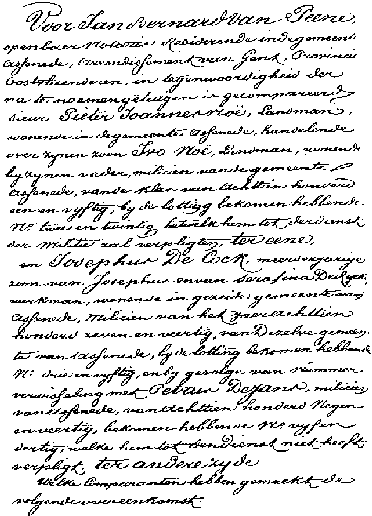 Voor Jan Bernard Van Peene,
openbaer Notaris Residerende in de gemeente
Assenede, Arrondissement van Gent, Provincie
Oostvlaenderen, in tegenwoordigheid der
na te noemen getuigen is gecompareerd
sieur Pieter Joannes Noë, Landman,
woonende in de gemeente Assenede, handelende
over zynen zoon Ivo Noë, Landman, woonende
by zynen vader, milicien van de gemeente
Assenede, van de klas van achttien honderd
een en vyftig, by de loting bekomen hebbende
N° twee en twintig, betwelk hem tot den dienst
der Militie zal verpligten, ter eene,
en Josephus De Cock, meerderjarige
zoon van Josephus en van Serafina De
werkman, woonende in gezeide gemeente van
Assenede, milicien van het jaer achttien
honderd zeven en veertig, van dezelve gemeen
te van Assenede, by de loting bekomen hebbende
N° drie en vyftig, en by gevolge van nummer
verwisseling met Petrus Depant, milicien
van Assenede, van achttien honderd Negen
en veertig, bekomen hebbende N° vyf en
dertig, welke hem tot den dienst niet heeft
verpligt, ter andere zyde
Welke Comparanten hebben gemaekt de
volgende overeenkomst